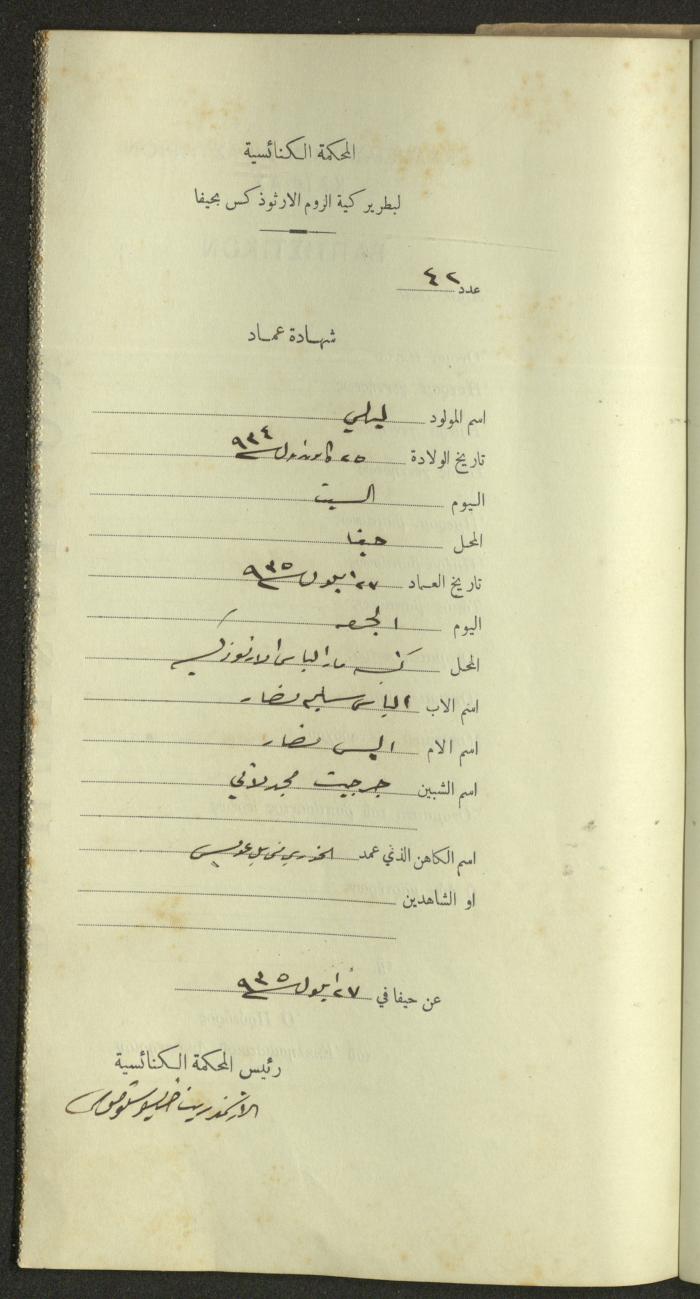 المحكمة الكنائسية
لبطريركية الروم الارثوذكس بحيفا
عدد ٤٢
شهادة عماد
اسم المولود ليلي
تاريخ الولادة ٢٥ كانون اول ٩٣٤
اليوم السبت
المحل حيفا
تاريخ العماد ٢٧ ايلول ٩٣٥
اليوم الجمعه
المحل كنيسة مار الياس الارثوذكسية
اسم الاب الياس سليم نصار
اسم الام اليس نصار
اسم الشبين جرجيت مجدلاني
اسم الكاهن الذي عمد الخوري
او الشاهدين
عن حيفا في ٢٧ ايلول ٩٣٥
رئيس المحكمة الكنائسية
الارشمندريت